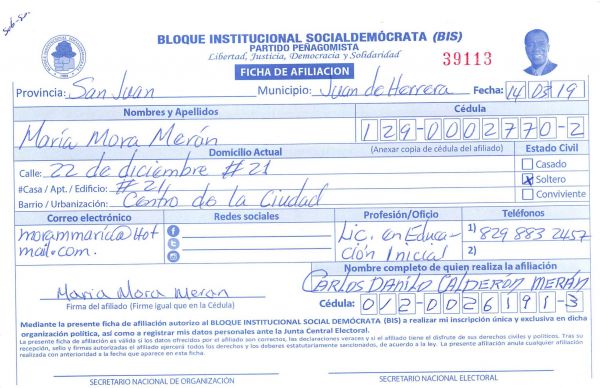 BLOQUE INSTITUCIONAL SOCIALDEMÓCRATA (BIS)
PARTIDO PEÑAGOMISTA
Libertad, Justicia, Democracia y Solidaridad
39113
FICHA DE AFILIACION
Provincia: San Juan Municipio: Juan de Herrera Fecha: 14 03 19
Nombres y Apellidos Cédula
María Mora Merán 129-0002770-2
Domicilio Actual (Anexar copia de cédula del afiliado) Estado Civil
Calle: 22 de diciembre #21 Casado
#Casa / Apt. / Edificio: #21 Soltero
Barrio / Urbanización: Centro de la Ciudad Conviviente
Correo electrónico Redes sociales Profesión/Oficio Teléfonos
morammaria@hot Lic. en Educa- 1) 829 883 2457
mail.com. ción Inicial 2)
Nombre completo de quien realiza la afiliación
María Mora Meran CARLOS DANILO CALDERÓN MERÁN
Firma del afiliado (Firme igual que en la Cédula) Cédula: 012-0026191-3
Mediante la presente ficha de afiliación autorizo al BLOQUE INSTITUCIONAL SOCIAL DEMÓCRATA (BIS) a realizar mi inscripción única y exclusiva en dicha
organización política, así como a registrar mis datos personales ante la Junta Central Electoral.
La presente ficha de afiliación es válida si los datos ofrecidos por el afiliado son correctos, las declaraciones veraces y si el afiliado tiene el disfrute de sus derechos civiles y políticos. Tras su
recepción, sello y firmas autorizadas el afiliado ejercerá todos los derechos y los deberes estatutariamente sancionados, de acuerdo a la ley. La presente afiliación anula cualquier afiliación
realizada con anterioridad a la fecha que aparece en esta ficha.
SECRETARIO NACIONAL DE ORGANIZACIÓN SECRETARIO NACIONAL ELECTORAL